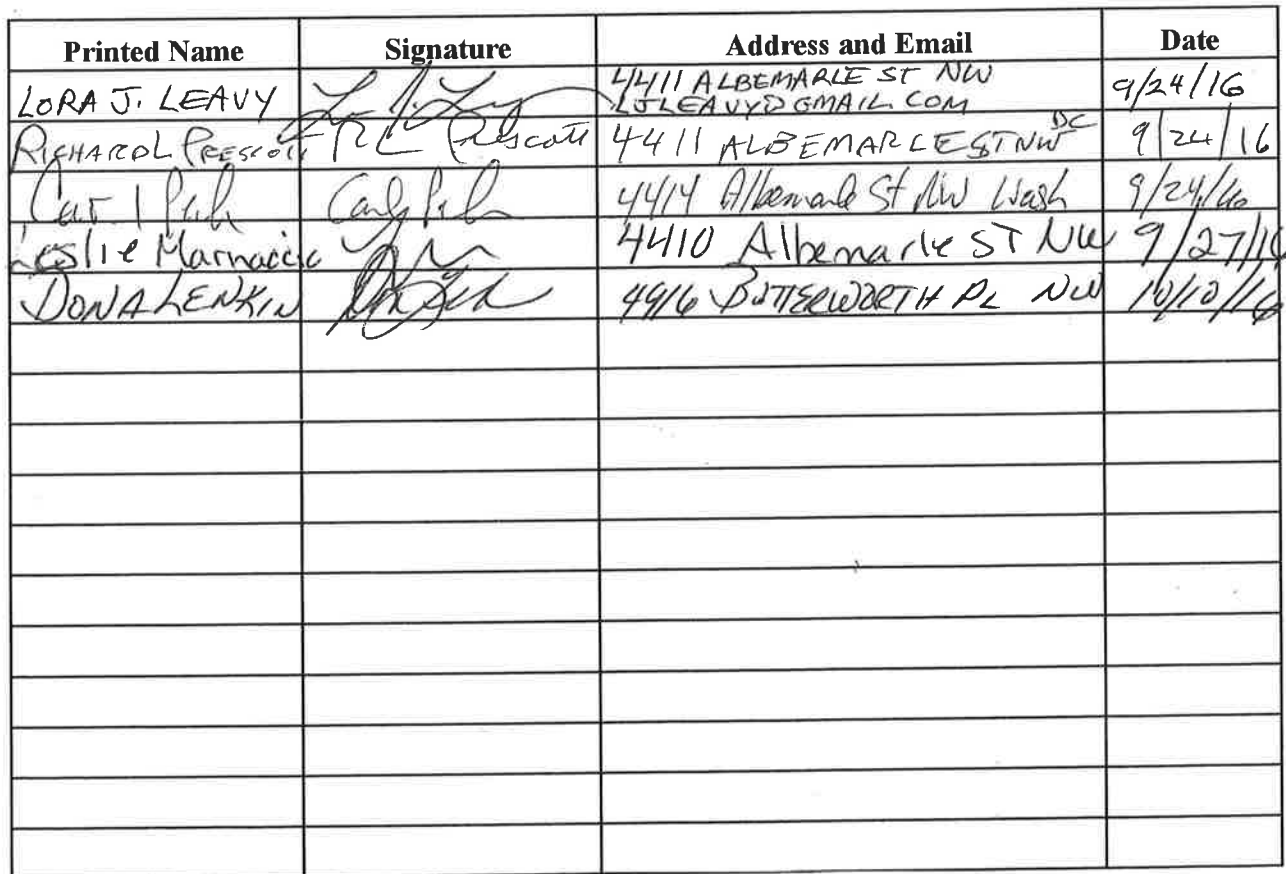 Printed Name Signature Address and Email Date
LORA J. LEAVY 4411 ALBEMARLE ST NW 9/24/16
LJLEAVY@GMAIL.COM
RICHARD L PRESCOTT R L Prescott 4411 ALBEMARLE ST NW DC 9/24/16
4414 Albemarle St NW Wash 9/24/16
Leslie 4410 Albemarle ST NW 9/27/16
DONA LENKIN 4916 BUTTERWORTH PL NW 10/10/16